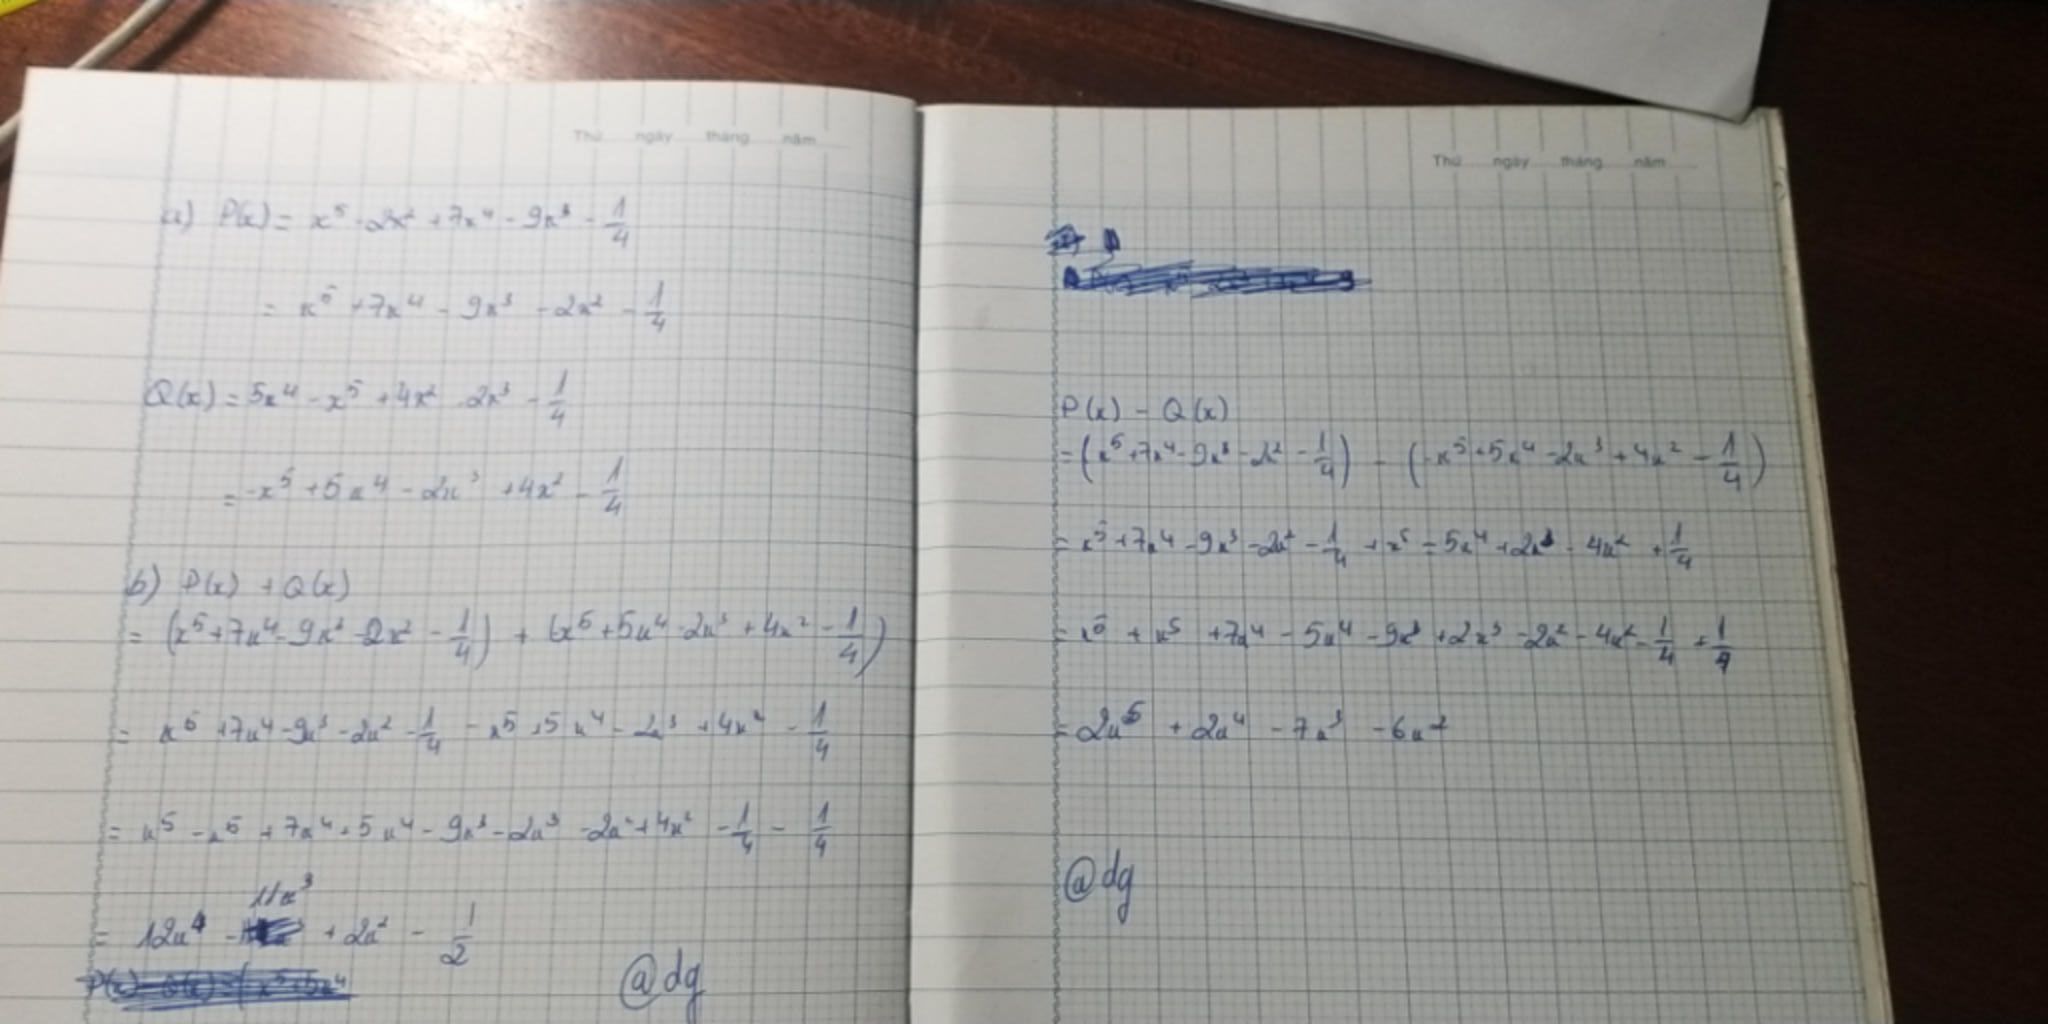 Thứ ngày tháng năm
a) P(x) = x⁵ - 2x² + 7x⁴ - 9x³ - 1/4
= x⁵ + 7x⁴ - 9x³ - 2x² - 1/4
Q(x) = 5x⁴ - x⁵ + 4x² - 2x³ - 1/4
= -x⁵ + 5x⁴ - 2x³ + 4x² - 1/4
b) P(x) + Q(x)
= (x⁵ + 7x⁴ - 9x² - 2x² - 1/4) + (x⁵ + 5x⁴ - 2x³ + 4x² - 1/4)
= x⁵ + 7x⁴ - 9x³ - 2x² - 1/4 - x⁵ + 5x⁴ - 2x³ + 4x² - 1/4
= x⁵ - x⁵ + 7x⁴ + 5x⁴ - 9x³ - 2x³ - 2x² + 4x² - 1/4 - 1/4
= 12x⁴ - 11x³ + 2x² - 1/2
@dg
Thứ ngày tháng năm
P(x) - Q(x)
= (x⁵ + 7x⁴ - 9x³ - 2x² - 1/4) - (-x⁵ + 5x⁴ - 2x³ + 4x² - 1/4)
= x⁵ + 7x⁴ - 9x³ - 2x² - 1/4 + x⁵ - 5x⁴ + 2x³ - 4x² + 1/4
= x⁵ + x⁵ + 7x⁴ - 5x⁴ - 9x³ + 2x³ - 2x² - 4x² - 1/4 + 1/4
= 2x⁵ + 2x⁴ - 7x³ - 6x²
@dg